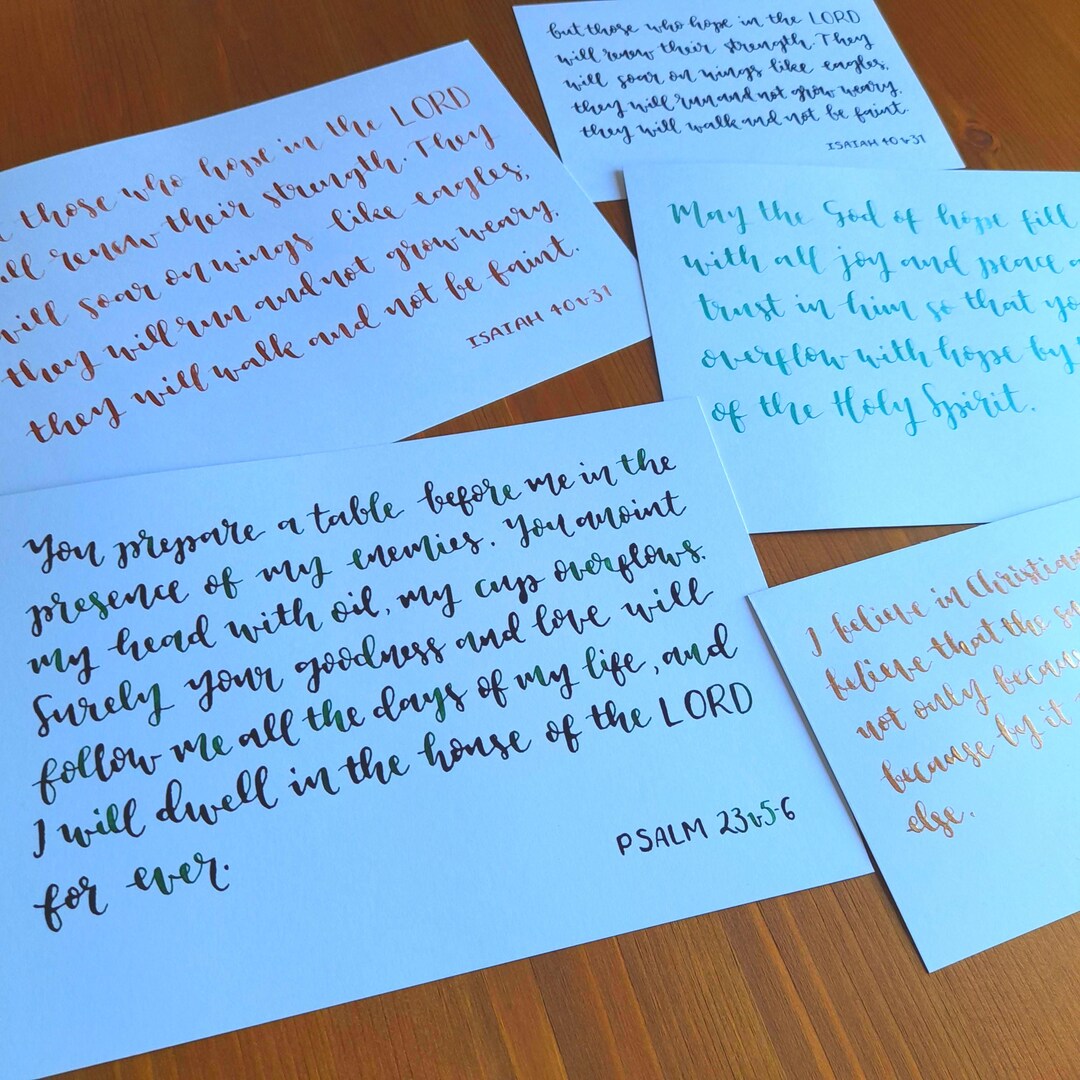 but those who hope in the LORD
will renew their strength. They
will soar on wings like eagles,
they will run and not grow weary.
they will walk and not be faint.
ISAIAH 40v31
those who hope in the LORD
renew their strength. They
will soar on wings like eagles;
they will run and not grow weary.
they will walk and not be faint.
ISAIAH 40v31
May the God of hope fill
with all joy and peace a
trust in him so that yo
overflow with hope by
of the Holy Spirit.
You prepare a table before me in the
presence of my enemies. You anoint
my head with oil, my cup overflows.
Surely your goodness and love will
follow me all the days of my life, and
I will dwell in the house of the LORD
for ever.
PSALM 23v5-6
I believe in Christian
believe that the su
not only becaus
because by it
else.